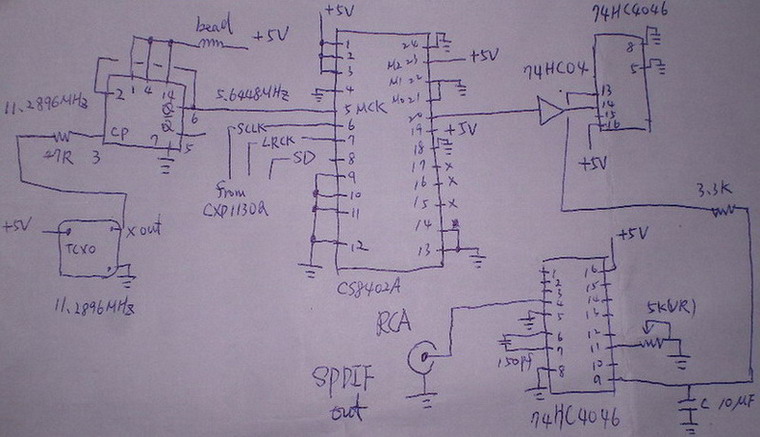 74HC4046
bead
+5V
+5V
8
5
13
14
15
16
+5V
74HC04
1
2
3
4
5 MCK
6
7
8
9
10
11
12
24
M2 23
M1 22
M0 21
20
19
18
17
16
15
14
13
+5V
+5V
x
x
x
CS8402A
2
1
4
14
Q
6
Q
5
7
CP
3
11.2896MHz
5.6448MHz
47R
SCLK
LRCK
SD
from
CXP11302
+5V
TCXO
X out
11.2896MHz
3.3K
+5V
1
2
3
4
5
6
7
8
16
15
14
13
12
11
10
9
5K(VR)
150pf
74HC4046
C 10μF
RCA
SPDIF
out